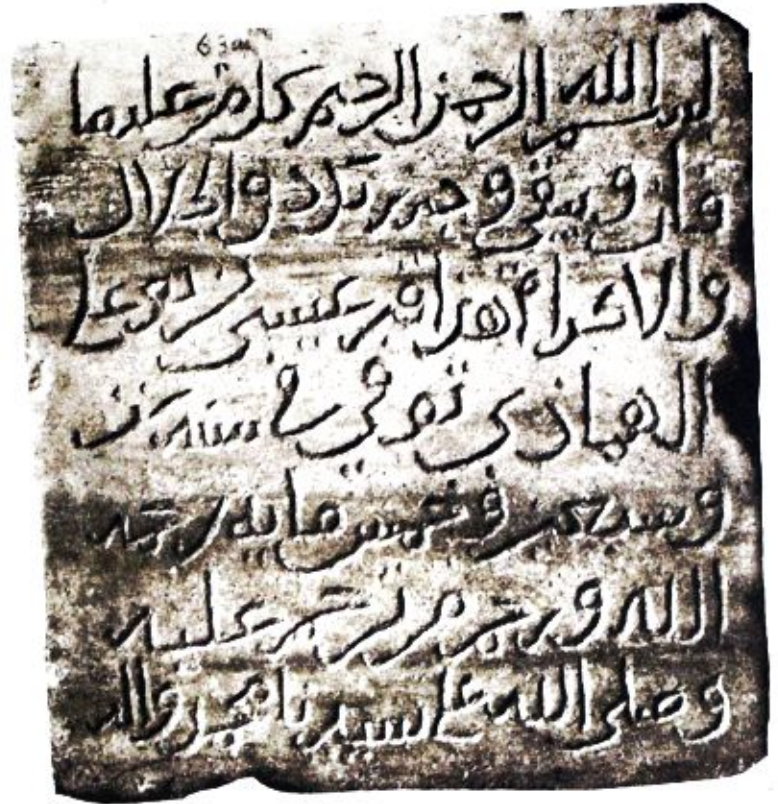 بسم الله الرحمن الرحيم كل من عليها
فان ويبقى وجه ربك ذو الجلال
والاكرام هذا قبر عيسى بن
توفي سنة
وسبعين وخمس مايه رحمه
الله ورحم من ترحم عليه
وصلى الله على سيدنا محمد واله